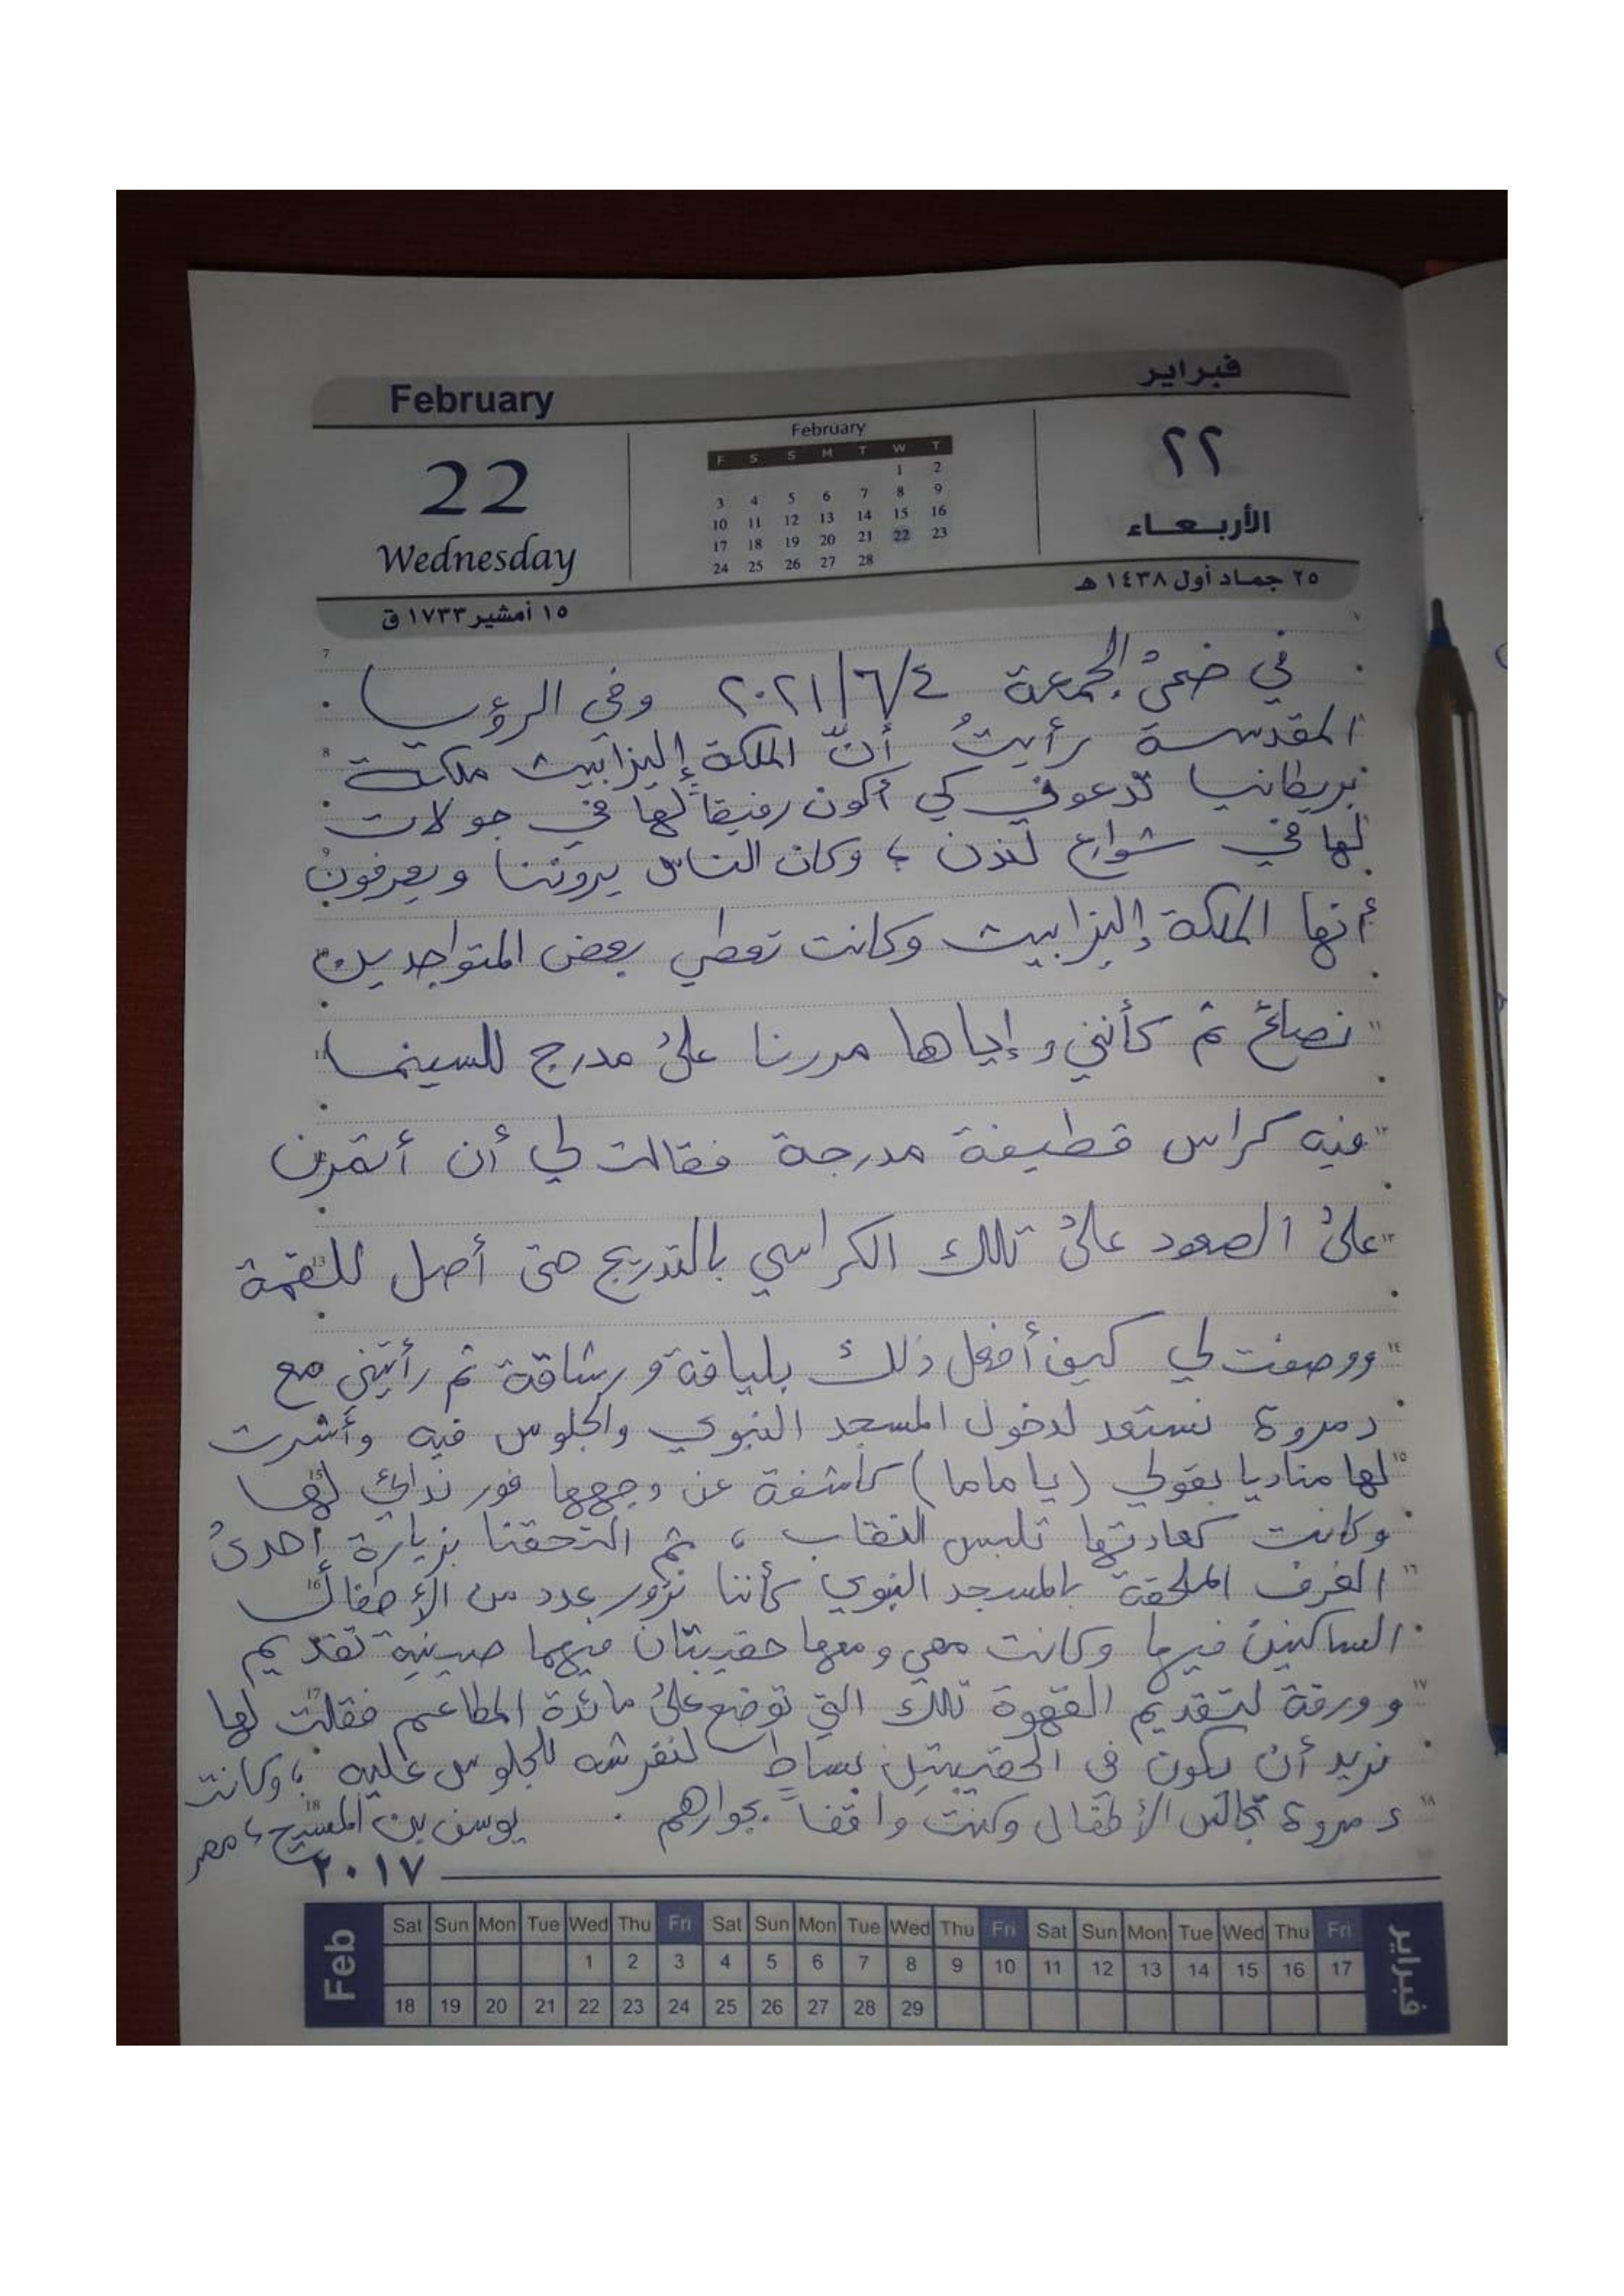 February
فبراير
22
Wednesday
February
F S S M T W T
1 2
3 4 5 6 7 8 9
10 11 12 13 14 15 16
17 18 19 20 21 22 23
24 25 26 27 28
٢٢
الأربعاء
٢٥ جماد أول ١٤٣٨ هـ
١٥ أمشير ١٧٣٣ ق
في ضحى الجمعة ٢٠٢١/٦/٤ وفي الرؤيا
المقدسة رأيتُ أنّ الملكة إليزابيث ملكة
بريطانيا تدعوني كي أكون رفيقاً لها في جولات
لها في شوارع لندن ، وكان الناس يروننا ويعرفون
أنها الملكة إليزابيث وكانت تعطي بعض المتواجدين
نصائح ثم كأنني وإياها مررنا على مدرج للسينما
فيه كراس قطيفة مدرجة فقالت لي أن أتمرن
على الصعود على تلك الكراسي بالتدريج حتى أصل للقمة
ووصفت لي كيف أفعل ذلك بلياقة ورشاقة ثم رأيتني مع
د مروة نستعد لدخول المسجد النبوي والجلوس فيه وأشرت
لها مناديا بقولي (يا ماما) كاشفة عن وجهها فور ندائي لها
وكانت كعادتها تلبس النقاب ، ثم التحقنا بزيارة إحدى
الغرف الملحقة بالمسجد النبوي كأننا نزور عدد من الأطفال
الساكنين فيها وكانت معي ومعها حقيبتان فيهما صينية تقديم
وورقة لتقديم القهوة تلك التي توضع على مائدة المطاعم فقلت لها
نريد أن يكون في الحقيبتين بساطٍ لنفرشه للجلوس عليه ، وكانت
د مروة تجالس الأطفال وكنت واقفاً بجوارهم . يوسف بن المسيح ، مصر
٢٠١٧
Feb
Sat Sun Mon Tue Wed Thu Fri Sat Sun Mon Tue Wed Thu Fri Sat Sun Mon Tue Wed Thu Fri
1 2 3 4 5 6 7 8 9 10 11 12 13 14 15 16 17
18 19 20 21 22 23 24 25 26 27 28 29
فبراير